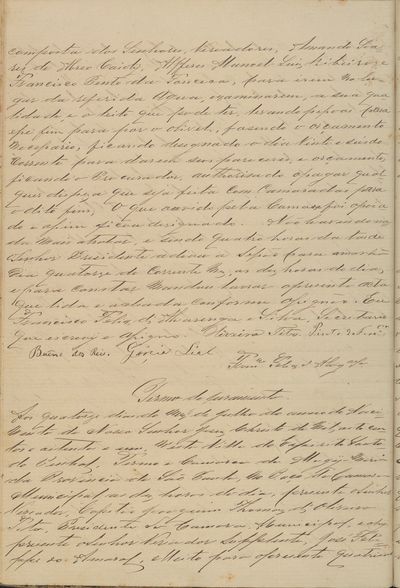 composta dos Senhores Vereadores, Amando Soa-
res de Abreo Caiobi, Alferes Manoel Luiz Ribeiro, e
Francisco Pinto da Fonceca, para irem no lu-
gar da referida Agua, examinarem, a sua qua-
lidade, e o leito que pode ter, levando pipois para
esse fim para por o nivel, fazendo o orcamento
necessario, ficando designado o dia vinte e seis do
Corrente para darem seo parecer, e orçamento,
ficando o Procurador, authorisado apagar qual
quer despeza que seja feita com Camaradas para
o dito fim, O que ouvido pela Camara foi apoia
do e assim ficou designado. Não havendo na-
da mais atratar, e sendo quatro horas da tarde
Senhor Presidente adiou a Sessão para amanhã
dia quatorze do Corrente Mez, as dez horas do dia,
e para constar mandou lavrar apresente acta
que lida e achada conforme assignão. Eu
Francisco Felis de Alvarenga e Silva, Secretario
que escrevi e assigno.
Garcia Leal
Termo de Juramento
Aos quatorze dias do Mez de Julho do anno do Naci-
mento de Nosso Senhor Jesus Christo de Mil oito cen-
tos e setenta e um, nesta Villa do Espirito Santo
do Pinhal, Termo e Comarca de Mogy Mirim
da Provincia de São Paulo, no Paço da Camara
Municipal as dez horas do dia, presente o Senhor
Vereador, Capitão Joaquim Thomaz d'
Presidente da Camara Municipal, e ahi
presente o Senhor Vereador Supplente, José Feli
do Amaral